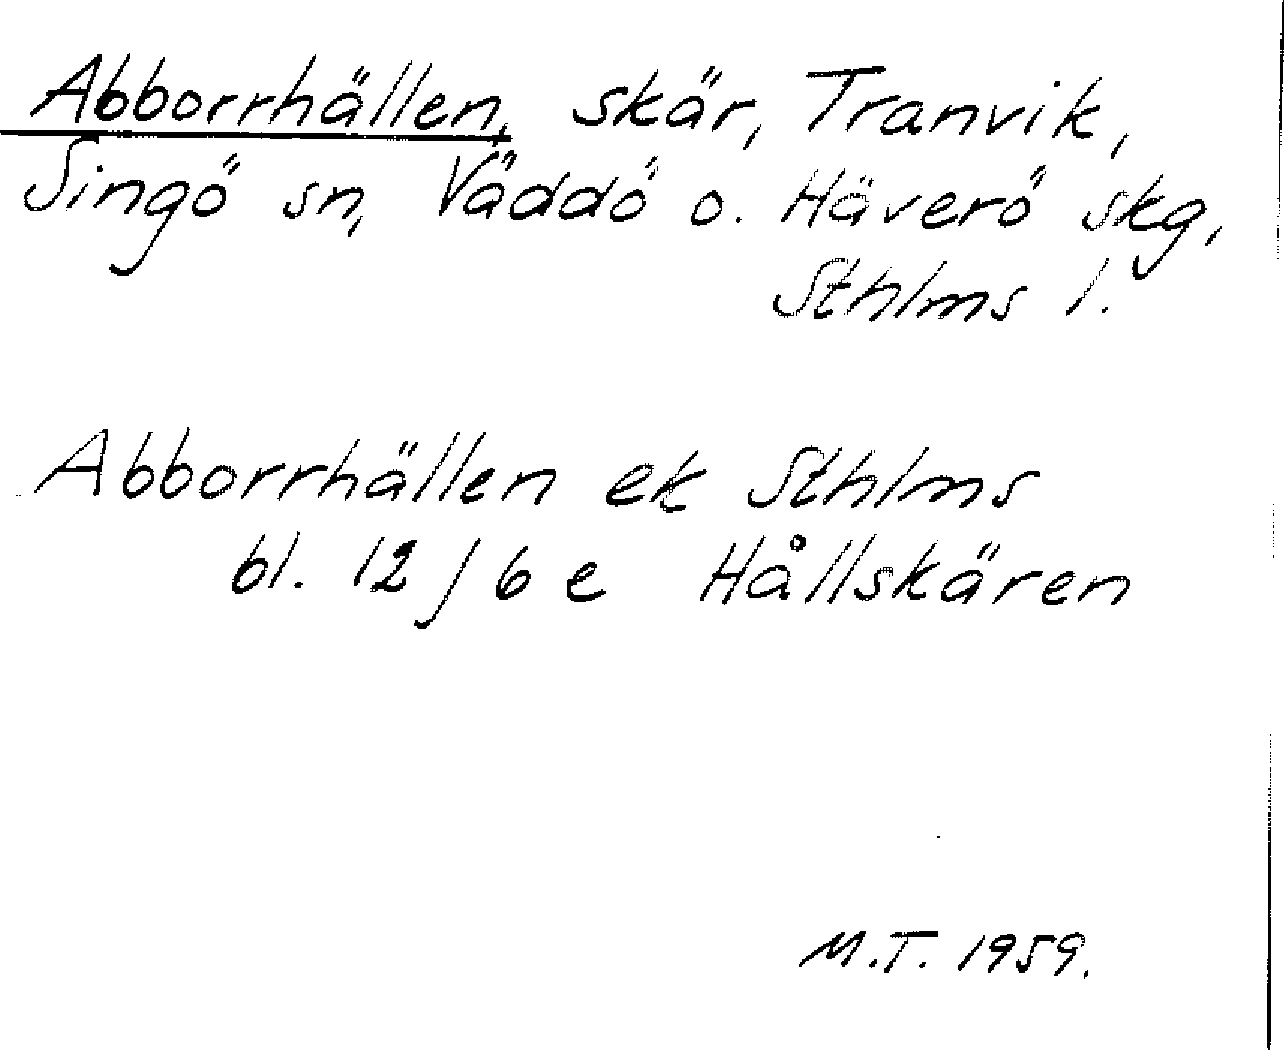 Abborrhällen, skär, Tranvik,
Singö sn, Väddö o. Häverö skg,
Sthlms l.
Abborrhällen ek Sthlms
bl. 12 J 6 e Hållskären
M.T. 1959.